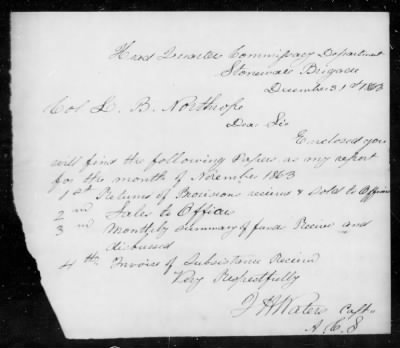 Head Quarters Commissary Department
Stonewall Brigade
December 31st 1863
Col L. B. Northrope
Dear Sir
Enclosed you
will find the following Papers as my report
for the month of November 1863
1st Returns of Provisions recieved & sold to Officers
2nd Sales to Officers
3rd Monthly Summary of funds Received and
disbursed
4th Invoice of Subsistence Received
Very Respectfully
J H Waters Capt
A. C. S